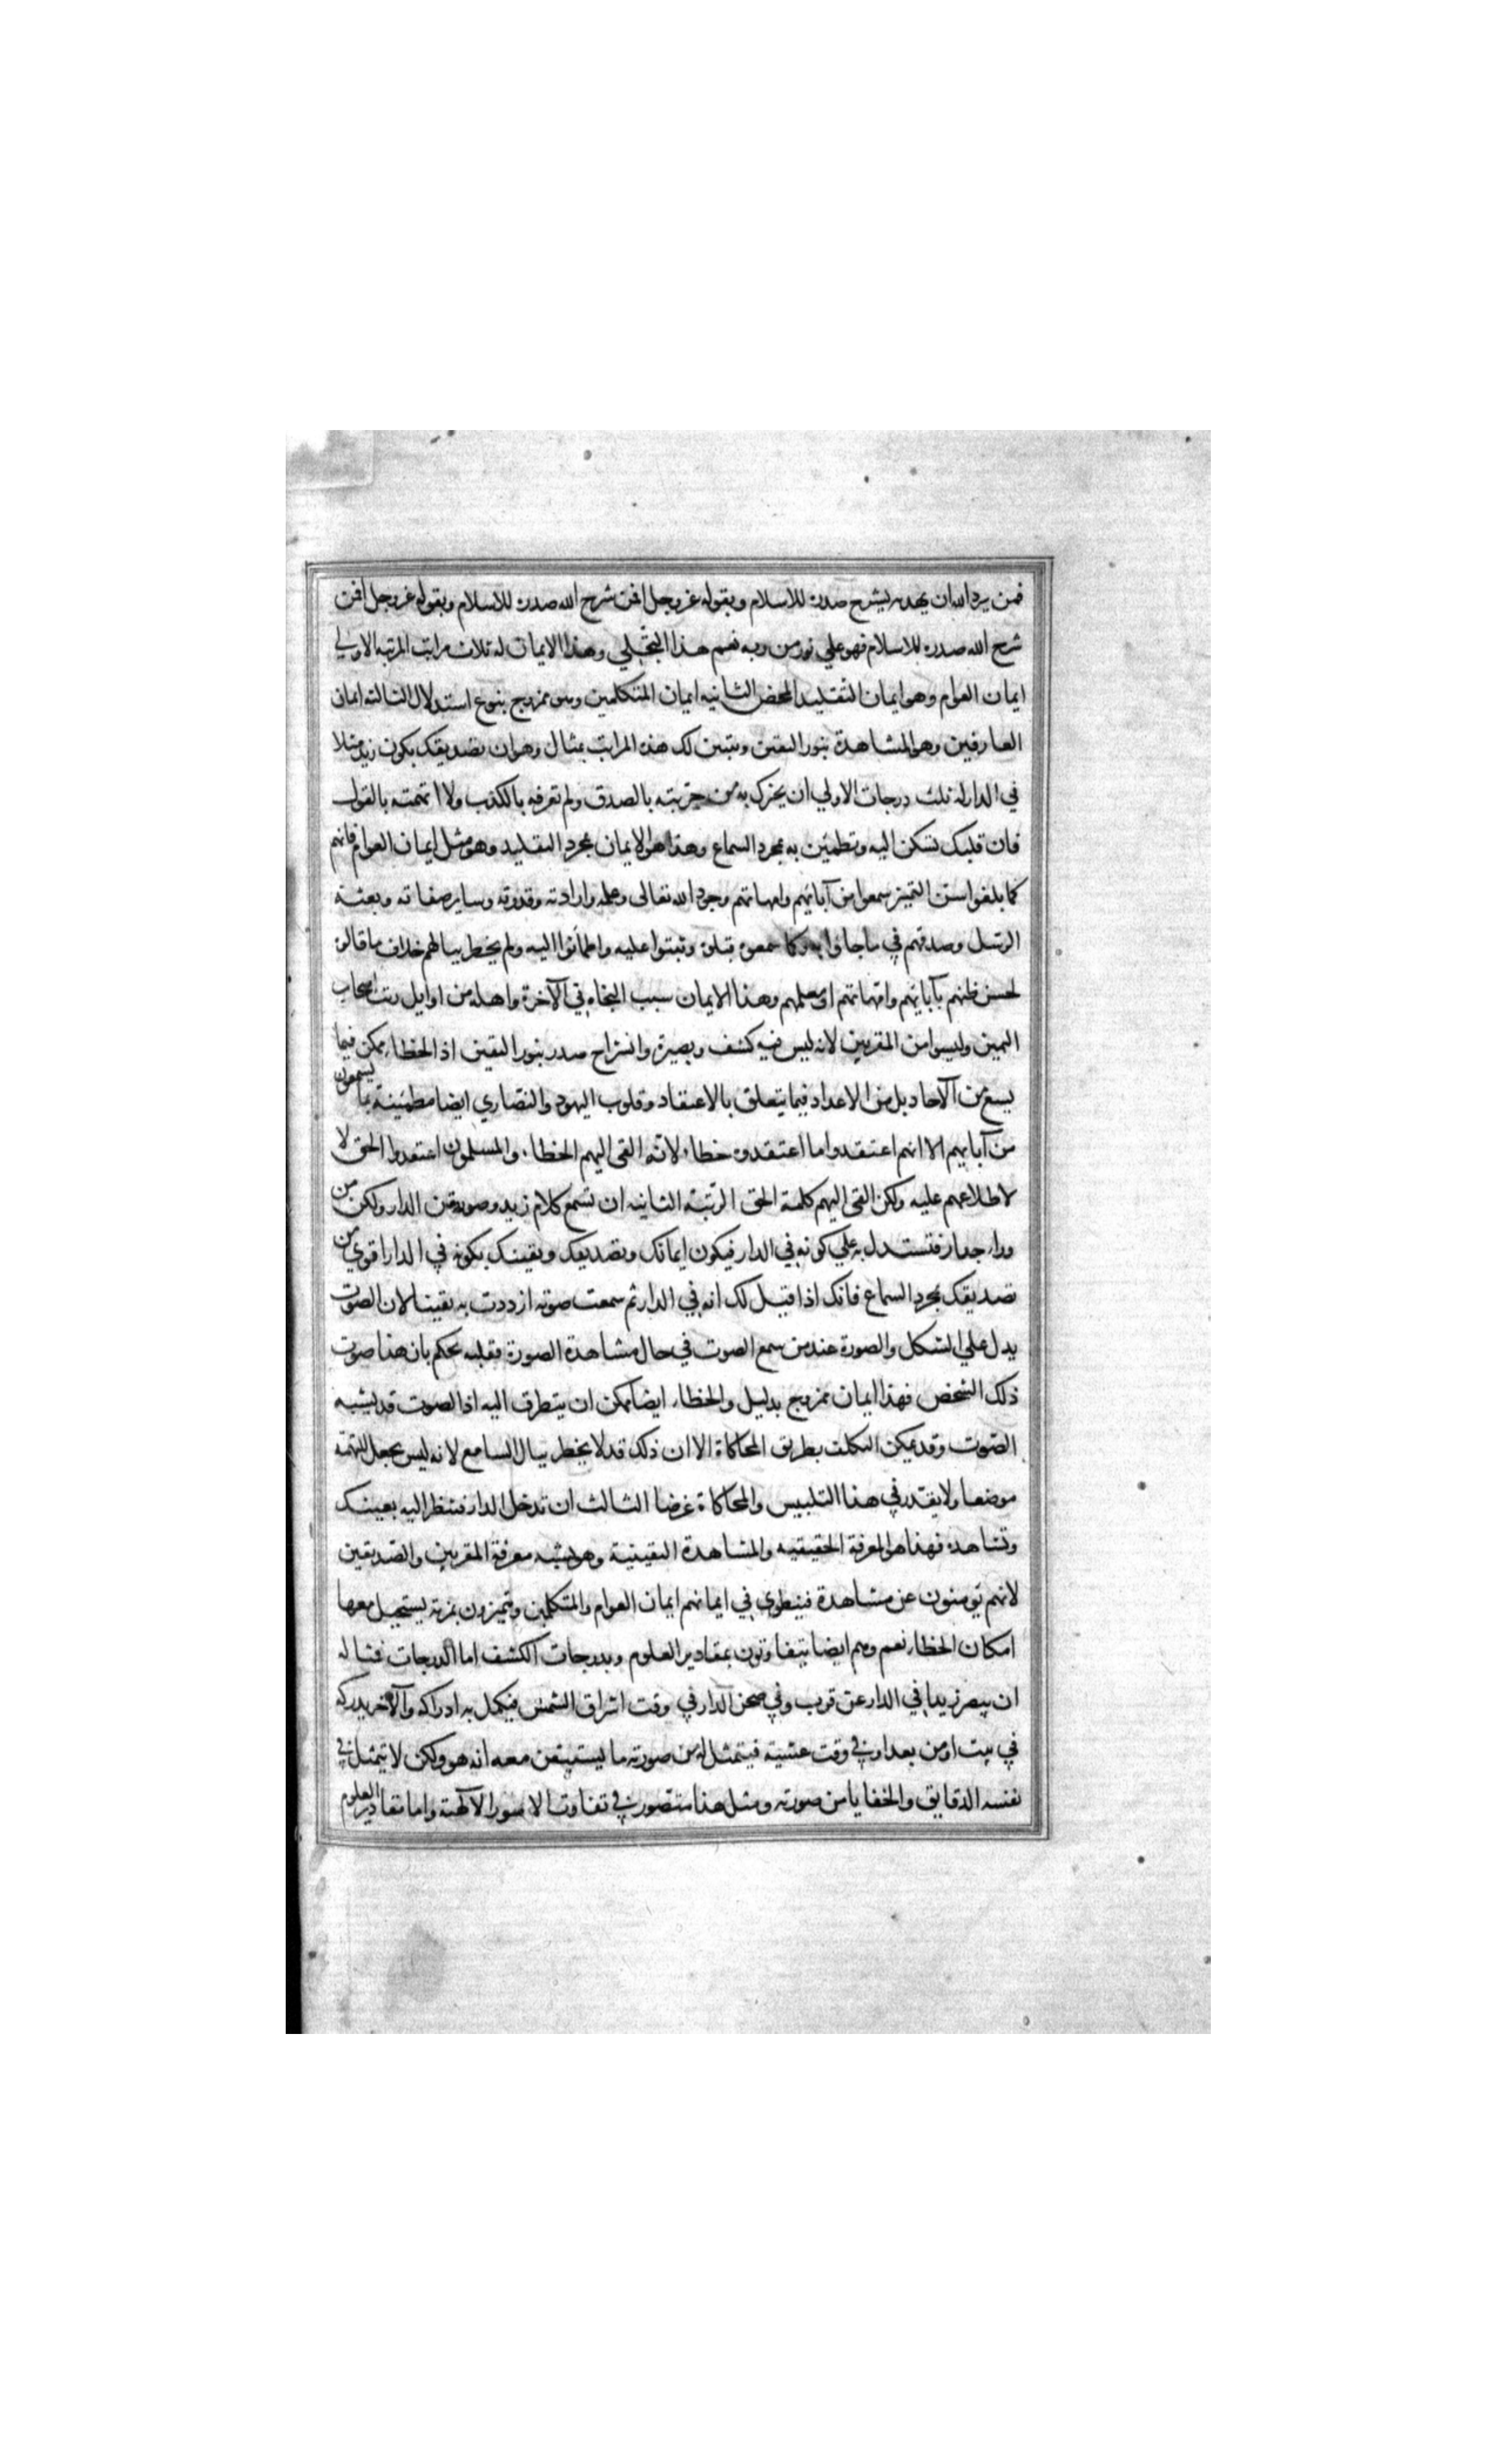 فمن يرد الله ان يهديه يشرح صدره للاسلام وبقوله عز وجل افمن شرح الله صدره للاسلام وبقوله عز وجل افمن
شرح الله صدره للاسلام فهو علي نور من ربه نعم هذا التجلي وهذا الايمان له ثلاث مراتب المرتبه الاولي
ايمان العوام وهو ايمان التقليد المحض الثانيه ايمان المتكلمين وهو ممزوج بنوع استدلال الثالثه ايمان
العارفين وهو المشاهدة بنور اليقين ونبين لك هذه المراتب بمثال وهو ان تصديقك بكون زيد مثلا
في الدار له ثلث درجات الاولي ان يخبرك به من جربته بالصدق ولم تعرفه بالكذب ولا اتهمته بالقول
فان قلبك تسكن اليه وتطمئن به بمجرد السماع وهذا هو الايمان بمجرد التقليد وهو مثل ايمان العوام فانهم
كما بلغوا سن التميز سمعوا من آبائهم وامهاتهم وجود الله تعالى وعلمه وارادته وقدرته وساير صفاته وبعثة
الرسل وصدقهم في ما جاؤا به وكما سمعوه قبلوه وثبتوا عليه واطمأنوا اليه ولم يخطر ببالهم خلاف ما قالوه
لحسن ظنهم بآبايهم وامهاتهم او معلمهم وهذا الايمان سبب النجاه في الآخرة واهله من اوايل رتب اصحاب
اليمين وليسوا من المقربين لانه ليس فيه كشف وبصيرة وانشراح صدر بنور اليقين اذ الخطاء ممكن فيما
يسمع من الآحاد بل من الاعداد فيما يتعلق بالاعتقاد وقلوب اليهود والنصاري ايضا مطمئينة بما يسمعون
من آبايهم الا انهم اعتقدوا ما اعتقدوه خطاء لانه القى اليهم الخطاء والمسلمون اعتقدوا الحق لا
لاطلاعهم عليه ولكن القى اليهم كلمة الحق الرتبة الثانيه ان تسمع كلام زيد وصوته من الدار ولكن من
وراء جدار فتستدل به علي كونه في الدار فيكون ايمانك وتصديقك ويقينك بكونه في الدار اقوي من
تصديقك بمجرد السماع فانك اذا قيل لك انه في الدار ثم سمعت صوته ازددت به يقينا لان الصوت
يدل علي الشكل والصورة عند من سمع الصوت في حال مشاهدة الصورة فقلبه يحكم بان هذا صوت
ذلك الشخص فهذا ايمان ممزوج بدليل والخطاء ايضا ممكن ان يتطرق اليه اذ الصوت قد يشبه
الصوت وقد يمكن التكلف بطريق المحاكاة الا ان ذلك قد لا يخطر ببال السامع لانه ليس يجعل للتهمة
موضعا ولا يقدر في هذا التلبيس والمحاكاة غرضا الثالث ان تدخل الدار فتنظر اليه بعينك
وتشاهده فهذا هو المعرفة الحقيقيه والمشاهدة اليقينية وهو يشبه معرفة المقربين والصديقين
لانهم يؤمنون عن مشاهدة فينطوي في ايمانهم ايمان العوام والمتكلمين ويتميزون بمزية يستحيل معها
امكان الخطاء نعم وهم ايضا يتفاوتون بمقادير العلوم وبدرجات الكشف اما الدرجات فمثاله
ان يبصر زيدا في الدار عن قرب وفي صحن الدار في وقت اشراق الشمس فيكمل به ادراكه والآخر يدركه
في بيت او من بعد او في وقت عشية فيتمثل له من صورته ما يستيقن معه انه هو ولكن لا يتمثل في
نفسه الدقايق والخفايا من صورته ومثل هذا متصور في تفاوت الامور الآلهية واما مقادير العلوم